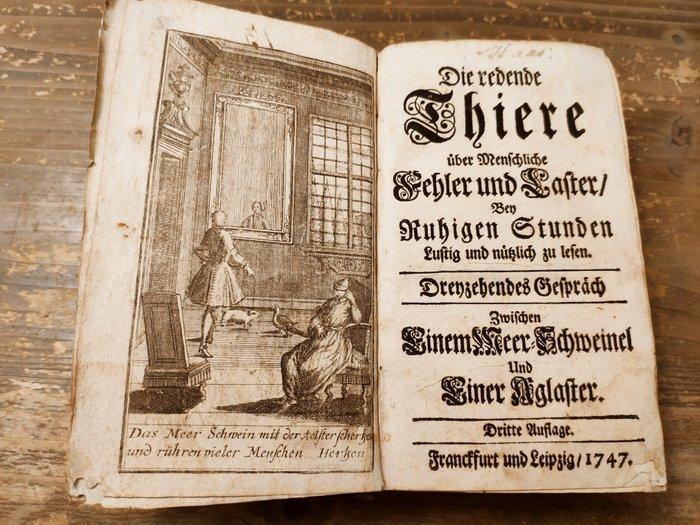 Das Meer Schwein mit der Aelster scherzen
und rühren vieler Menschen Hertzen
Haas.
Die redende
Thiere
über Menschliche
Fehler und Laster/
Bey
Ruhigen Stunden
Lustig und nützlich zu lesen.
Dreyzehendes Gespräch
Zwischen
Einem Meer-Schweinel
Und
Einer Aglaster.
Dritte Auflage.
Franckfurt und Leipzig/1747.